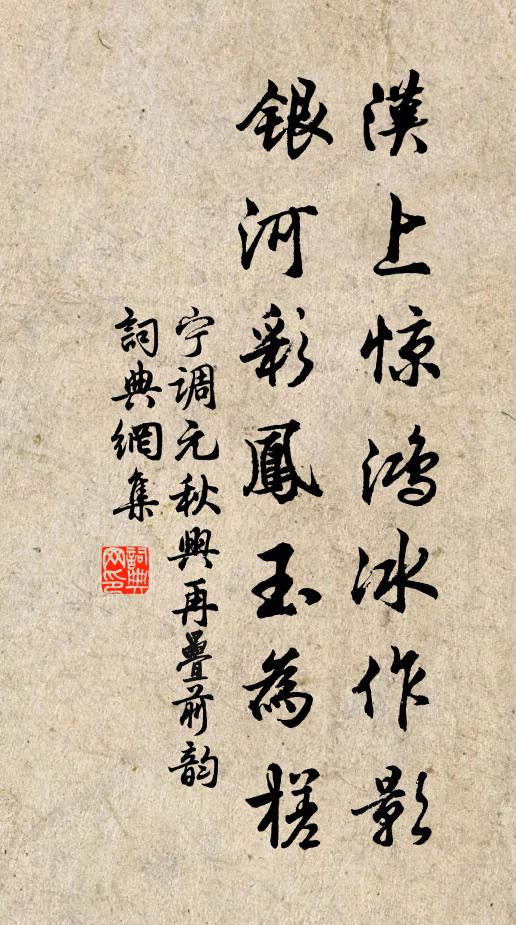 漢上惊鸿冰作影
銀河彩鳳玉為槎
宁调元秋興再疊前韵
詞典網集
詞典网印